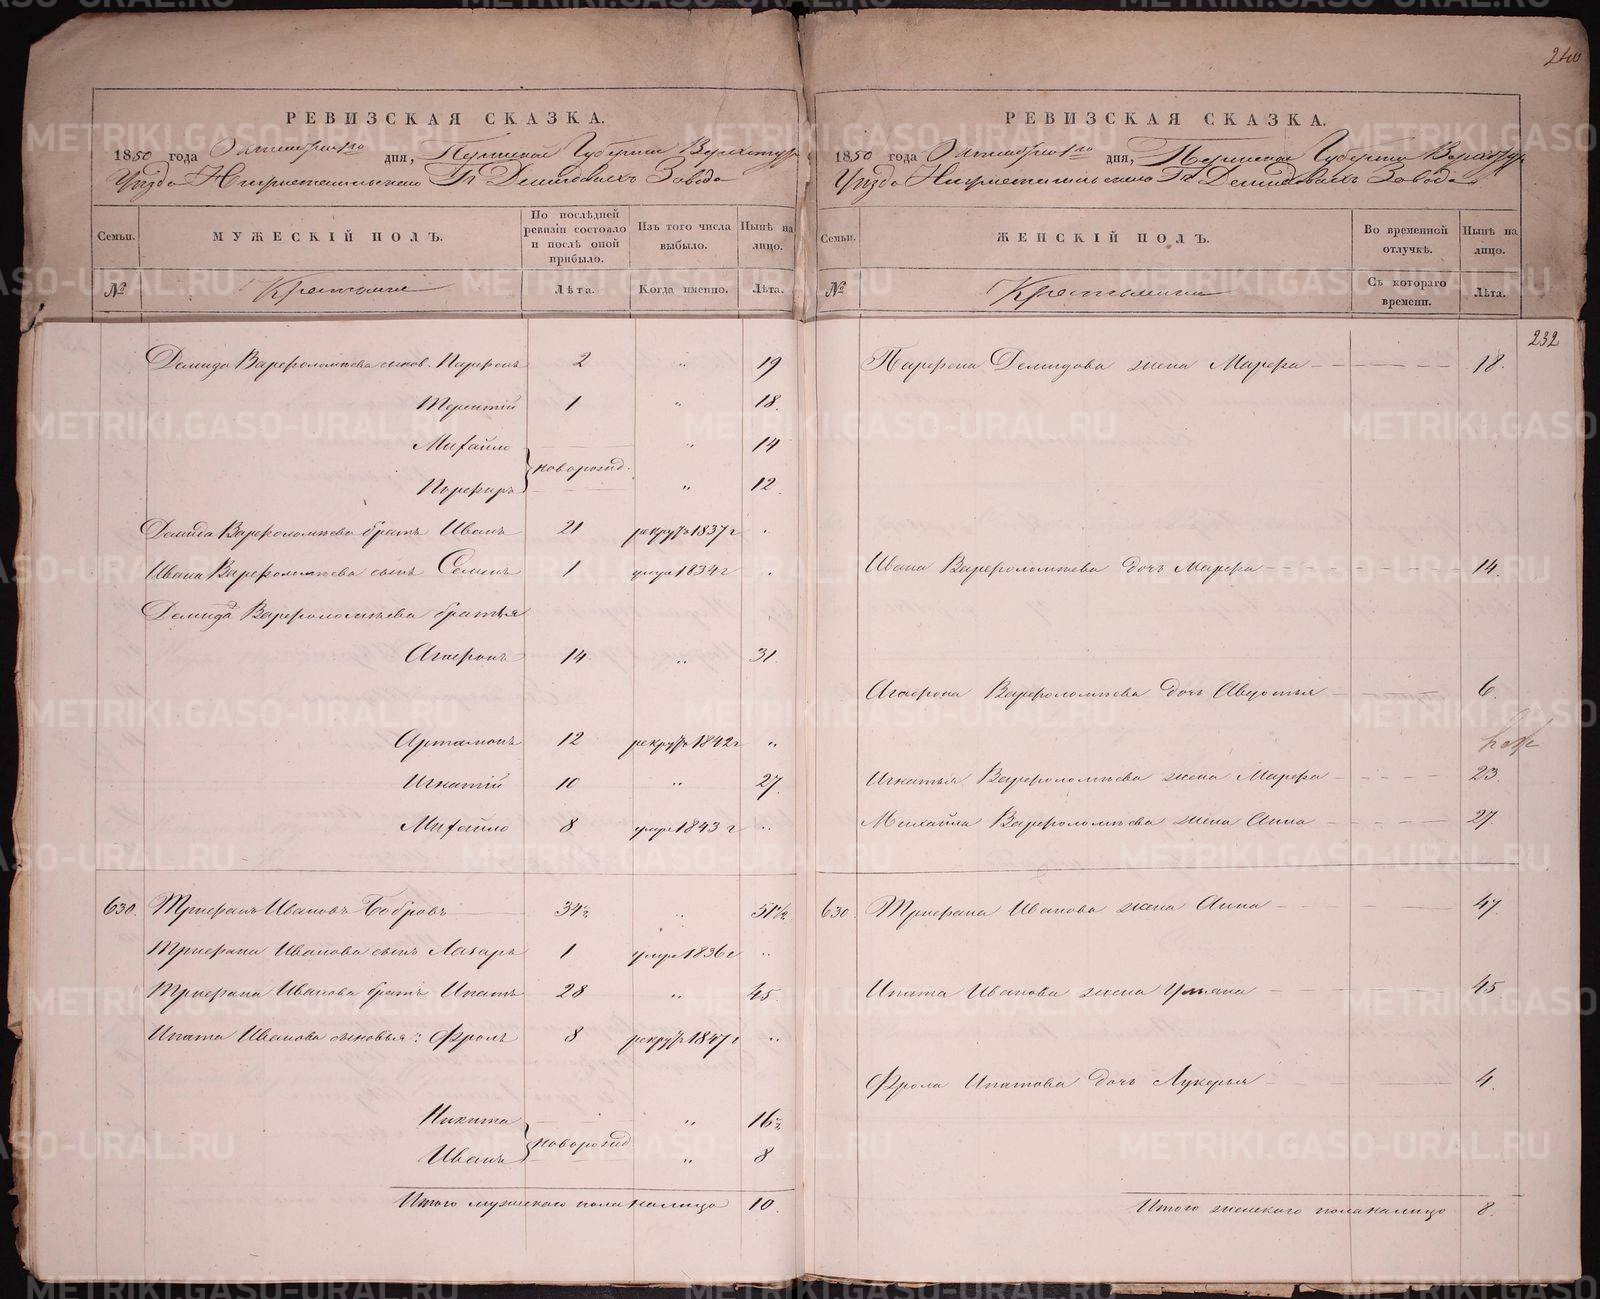 240
РЕВИЗСКАЯ СКАЗКА.
1850 года Октября 1го дня, Пермской Губернiи Верхотур
Уѣзда Нижнетагильскаго Гг. Демидовыхъ Завода
Семьи. МУЖЕСКIЙ ПОЛЪ. По послѣдней ревизiи состояло и послѣ оной прибыло. Изъ того числа выбыло. Нынѣ на лицо.
№ Крестьяне Лѣта. Когда именно. Лѣта.
Демида Варфоломѣева сынов. Парфенъ 2 " 19
Терентiй 1 " 18.
Михайло " 14
новорожд.
Порфиръ " 12.
Демида Варфоломѣева братъ Иванъ 21 рекрут. 1837 г "
Ивана Варфоломѣева сынъ Семенъ 1 умре 1834 г "
Демида Варфоломѣева братья
Агафонъ 14. " 31.
Артамонъ 12 рекрут. 1842 г "
Игнатiй 10 " 27.
Михайло 8 умре 1843 г "
630. Трифанъ Ивановъ Бобровъ 34½ " 51½
Трифана Иванова сынъ Лазарь 1 умре 1836 г "
Трифана Иванова братъ Ипатъ 28 " 45.
Ипата Иванова сыновья: Фролъ 8 рекрут. 1847 г "
Никита " 16½
новорожд
Иванъ " 8
Итого мужескаго пола на лицо 10.
РЕВИЗСКАЯ СКАЗКА.
1850 года Октября 1го дня, Пермской Губернiи Верхотур
Уѣзда Нижнетагильскаго Гг. Демидовыхъ Завода
Семьи. ЖЕНСКIЙ ПОЛЪ. Во временной отлучкѣ. Нынѣ на лицо.
№ Крестьянки Съ котораго времени. Лѣта.
232
Парфена Демидова жена Марфа 18.
Ивана Варфоломѣева дочь Марфа 14.
Агафона Варфоломѣева дочь Авдотья 6.
Игнатья Варфоломѣева жена Марфа 23.
Михайла Варфоломѣева жена Анна 27.
630. Трифана Иванова жена Анна 47
Ипата Иванова жена Ульяна 45
Фрола Ипатова дочь Лукерья 4.
Итого женскаго пола на лицо 8.
METRIKI.GASO-URAL.RU